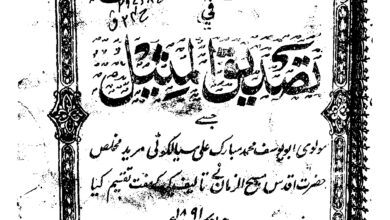 في
تصدیق المثیل
جسے
مولوی ابو یوسف محمد مبارک علی سیالکوٹی مرید مخلص
حضرت اقدس مسیح الزمان نے تالیف کر کے مفت تقسیم کیا
۱۸۹۱